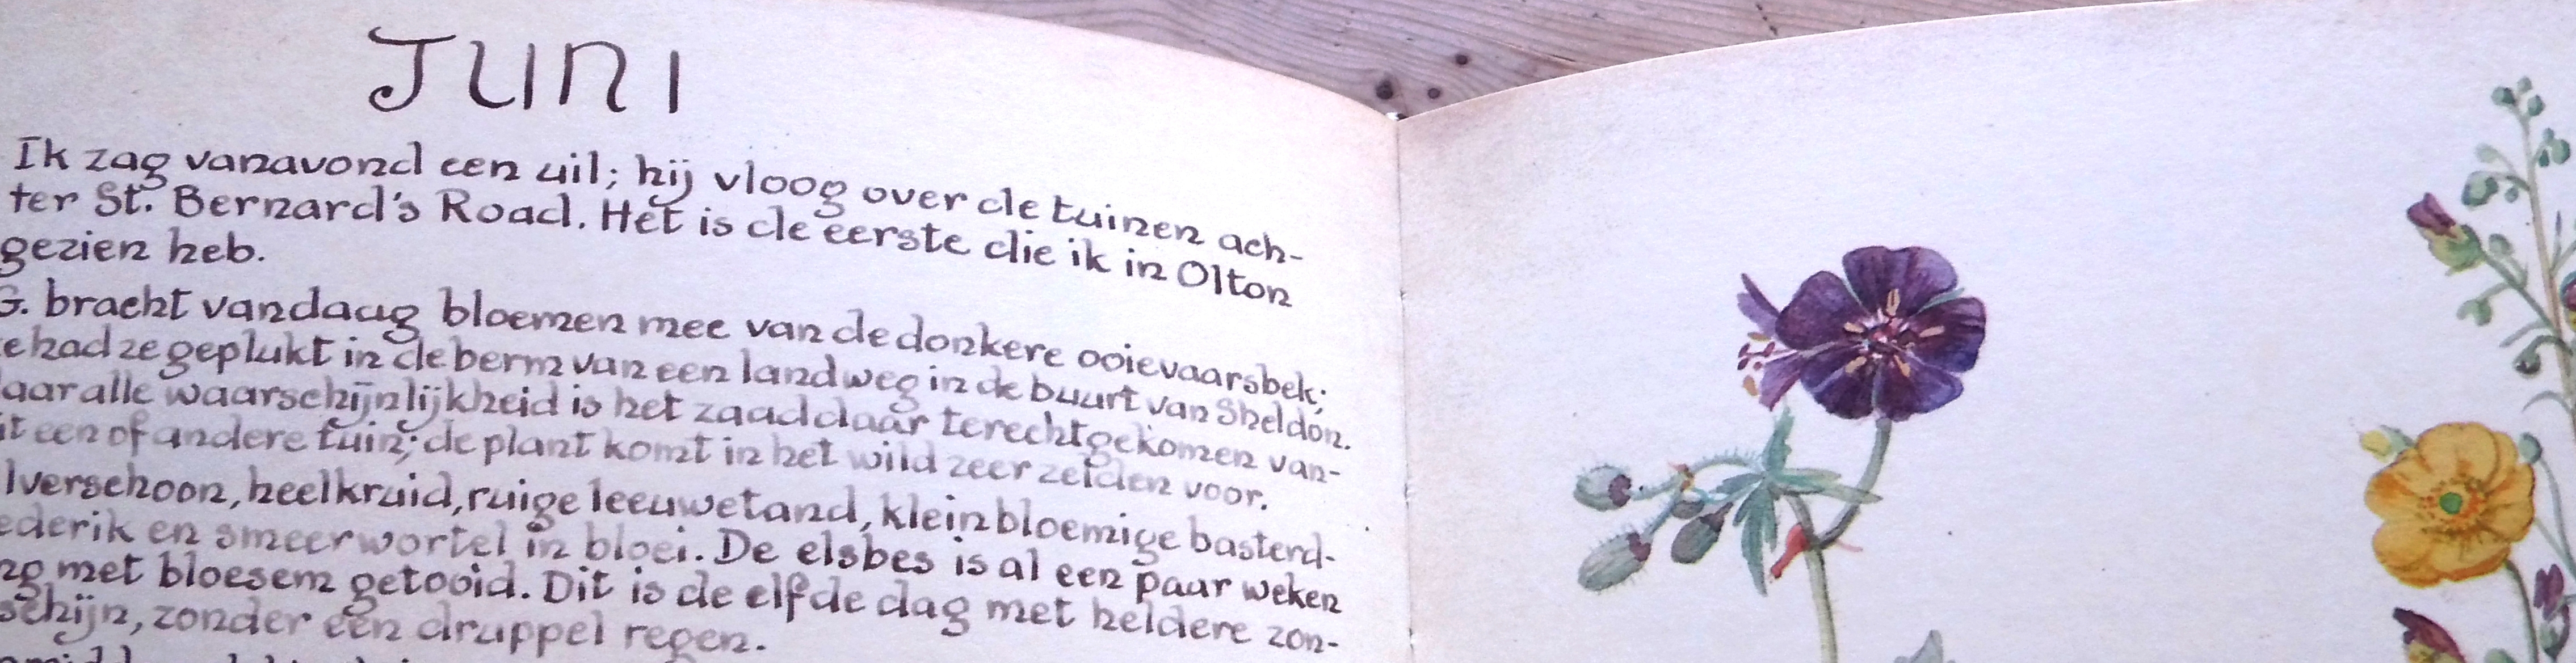 JUNI
Ik zag vanavond een uil; hij vloog over de tuinen ach-
ter St. Bernard's Road. Het is de eerste die ik in Olton
gezien heb.
G. bracht vandaag bloemen mee van de donkere ooievaarsbek;
had ze geplukt in de berm van een landweg in de buurt van Sheldon.
alle waarschijnlijkheid is het zaad daar terechtgekomen van-
een of andere tuin; de plant komt in het wild zeer zelden voor.
lverschoon, heelkruid, ruige leeuwetand, kleinbloemige basterd-
ederik en smeerwortel in bloei. De elsbes is al een paar weken
ng met bloesem getooid. Dit is de elfde dag met heldere zon-
schijn, zonder een druppel regen.